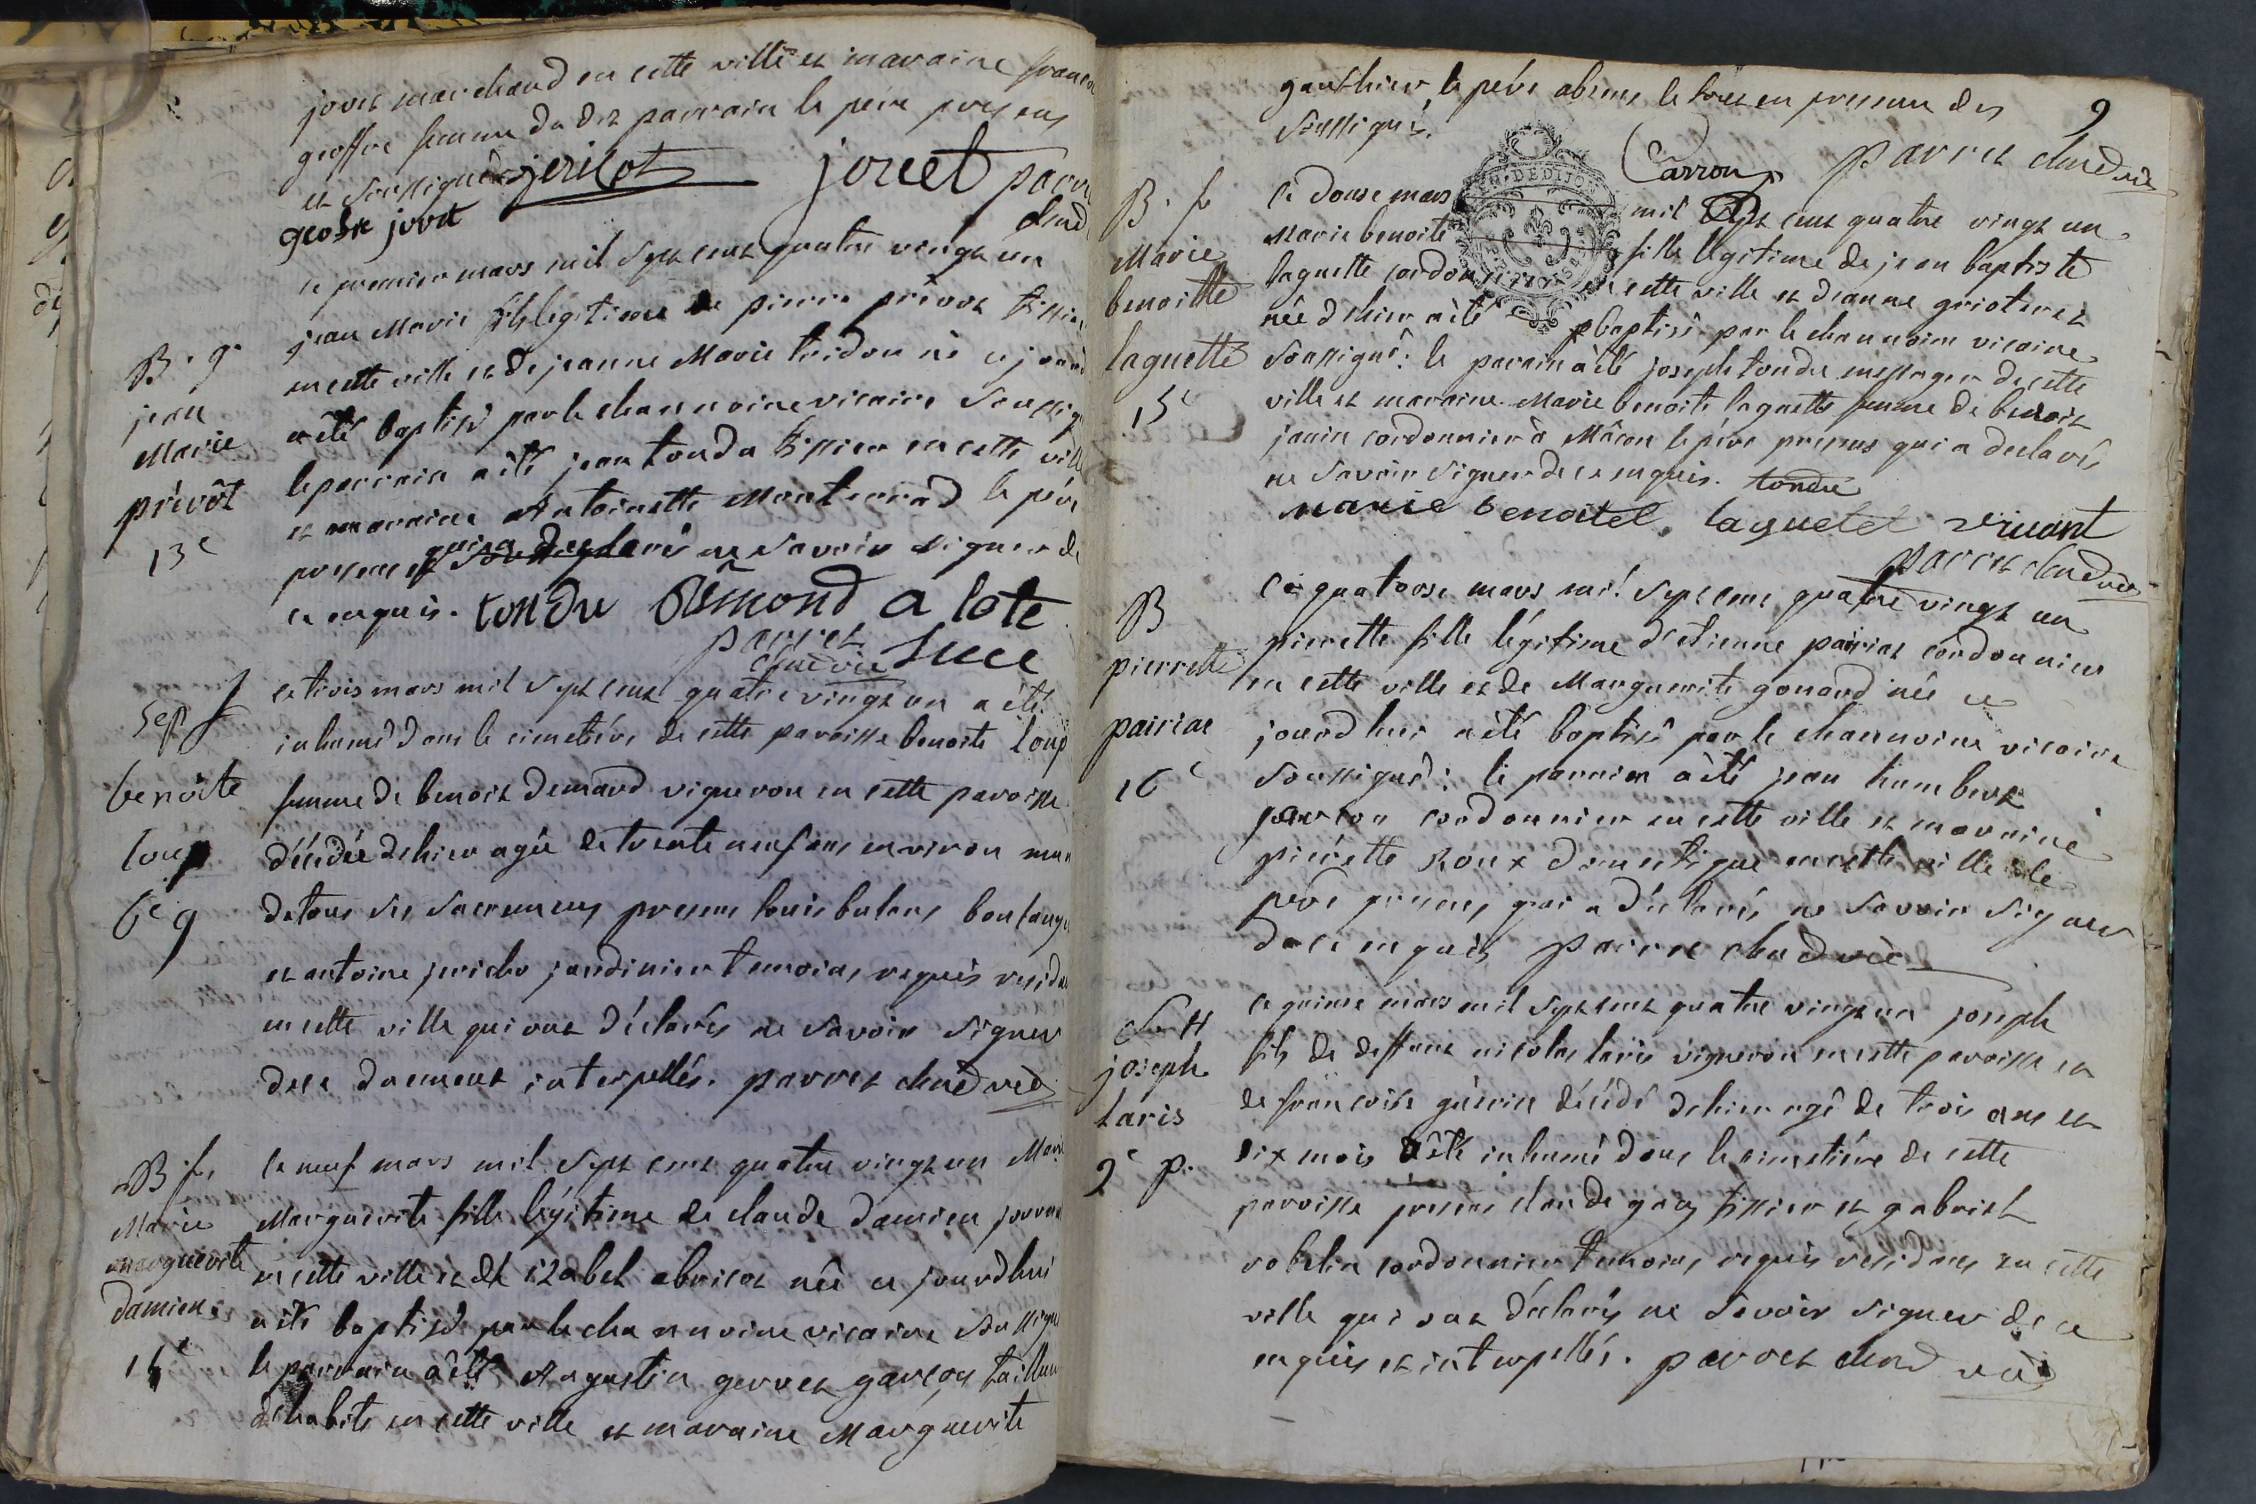 jovet marchand en cette ville et maraine francoi
geoffre femme du dit parrain le père presens
et soussignés jericot jovet parr
geofre jovet chnd
ce premier mars mil sept cent quatre vingt un
B. g. jean Marie fils légitime de pierre prévot tissier
jean en cette ville et de jeanne Marie tridon né ce jourd
Marie a été baptisé par le chanoine vicaire soussigné
prévôt le parrain a été jean tondu tissier en cette ville
13e et maraine Antoinette Monterrad le père
presens qui a declaré ne savoir signer de
ce enquis. tondu Rémond a lote
parret chnd vic luce
Sep f ce trois mars mil sept cent quatre vingt un a été
inhumé dans le cimetière de cette paroisse benoite loup
benoite femme de benoit demard vigneron en cette paroisse
loup décédée dehier agée de trente neuf ans environ mun
6e g de tous ses sacremens presens louis bulans boulange
et antoine jericho jardinier temoins requis residan
en cette ville qui ont déclarés ne savoir signer
de ce duement interpellés. parret chnd vic
B. f. ce neuf mars mil sept cent quatre vingt un Marie
Marie Marguerite fille légitime de claude damien journ
marguerite en cette ville et de izabel abricot née ce jourdhui
damien a été baptisée par le chanoine vicaire soussigné
14e le parrain a été Augustin gervet garçon tailleur
dhabits en cette ville et maraine Marguerite
gauthier le père absens le tout en presence des 9
soussignés. Carron parret chnd vic
B. f. ce douse mars mil sept cent quatre vingt un
Marie Marie benoite fille légitime de jean baptiste
benoitte laguette cordonnier en cette ville et deanne grioteret
née dehier a été baptisée par le chanoine vicaire
laguette soussigné: le parain a été joseph tondu messager de cette
15e ville et maraine Marie benoite laguette femme de benoit
janin cordonnier à Mâcon le père presens qui a declaré
ne savoir signer de ce enquis. tondu
marie benoitel laguetel vivant
parret chnd vic
B ce quatorse mars mil sept cent quatre vingt un
pierrette pierrette fille légitime détienne pairiat cordonnier
en cette ville et de Marguerite gonard née ce
pairiat jourdhui a été baptisé par le chanoine vicaire
16e soussigné: le parrain a été jean humbert
garçon cordonnier en cette ville et maraine
pierrette Roux domestique en cette ville le
père presens qui a déclaré ne savoir signer
de ce enquis parret chnd vic
ce quinse mars mil sept cent quatre vingt un joseph
joseph fils de deffunt nicolas laris vigneron en cette paroisse et
laris de francoise guérin décédé dehier agé de trois ans et
2e p. dix mois a été inhumé dans le cimetière de cette
paroisse presens claude gay tissier et gabriel
robelin cordonnier temoins requis residens en cette
ville qui ont déclarés ne savoir signer de ce
enquis et interpellés. parret chnd vic